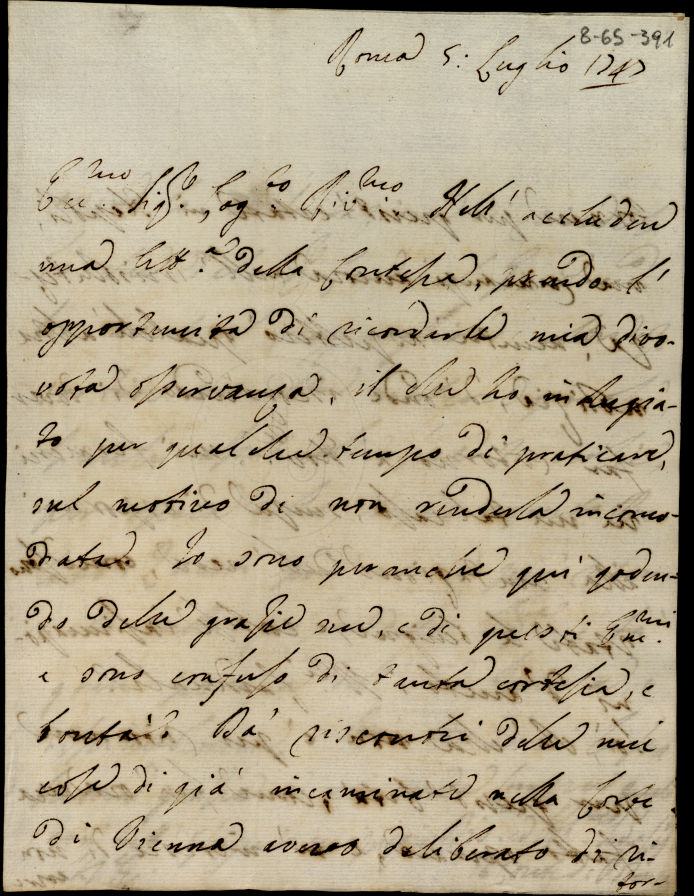 8-65-391
Roma 5: Luglio 1747
Ecc.mo Sig.r Sig.ro Riv.mo Nell' accluder
una lett.a della Contessa, prendo l'
opportunità di ricordarle mia divo-
vota osservanza, il che ho indugia-
to per qualche tempo di praticare,
sul motivo di non renderla incomo-
data. Io sono peranche qui goden-
do delle grazie sue, e di questi Em.mi
e sono confuso di tanta cortesia, e
bontà. Da' riscontri delle mie
cose di già incaminate nella Corte
di Vienna avevo deliberato di ri-
tor-